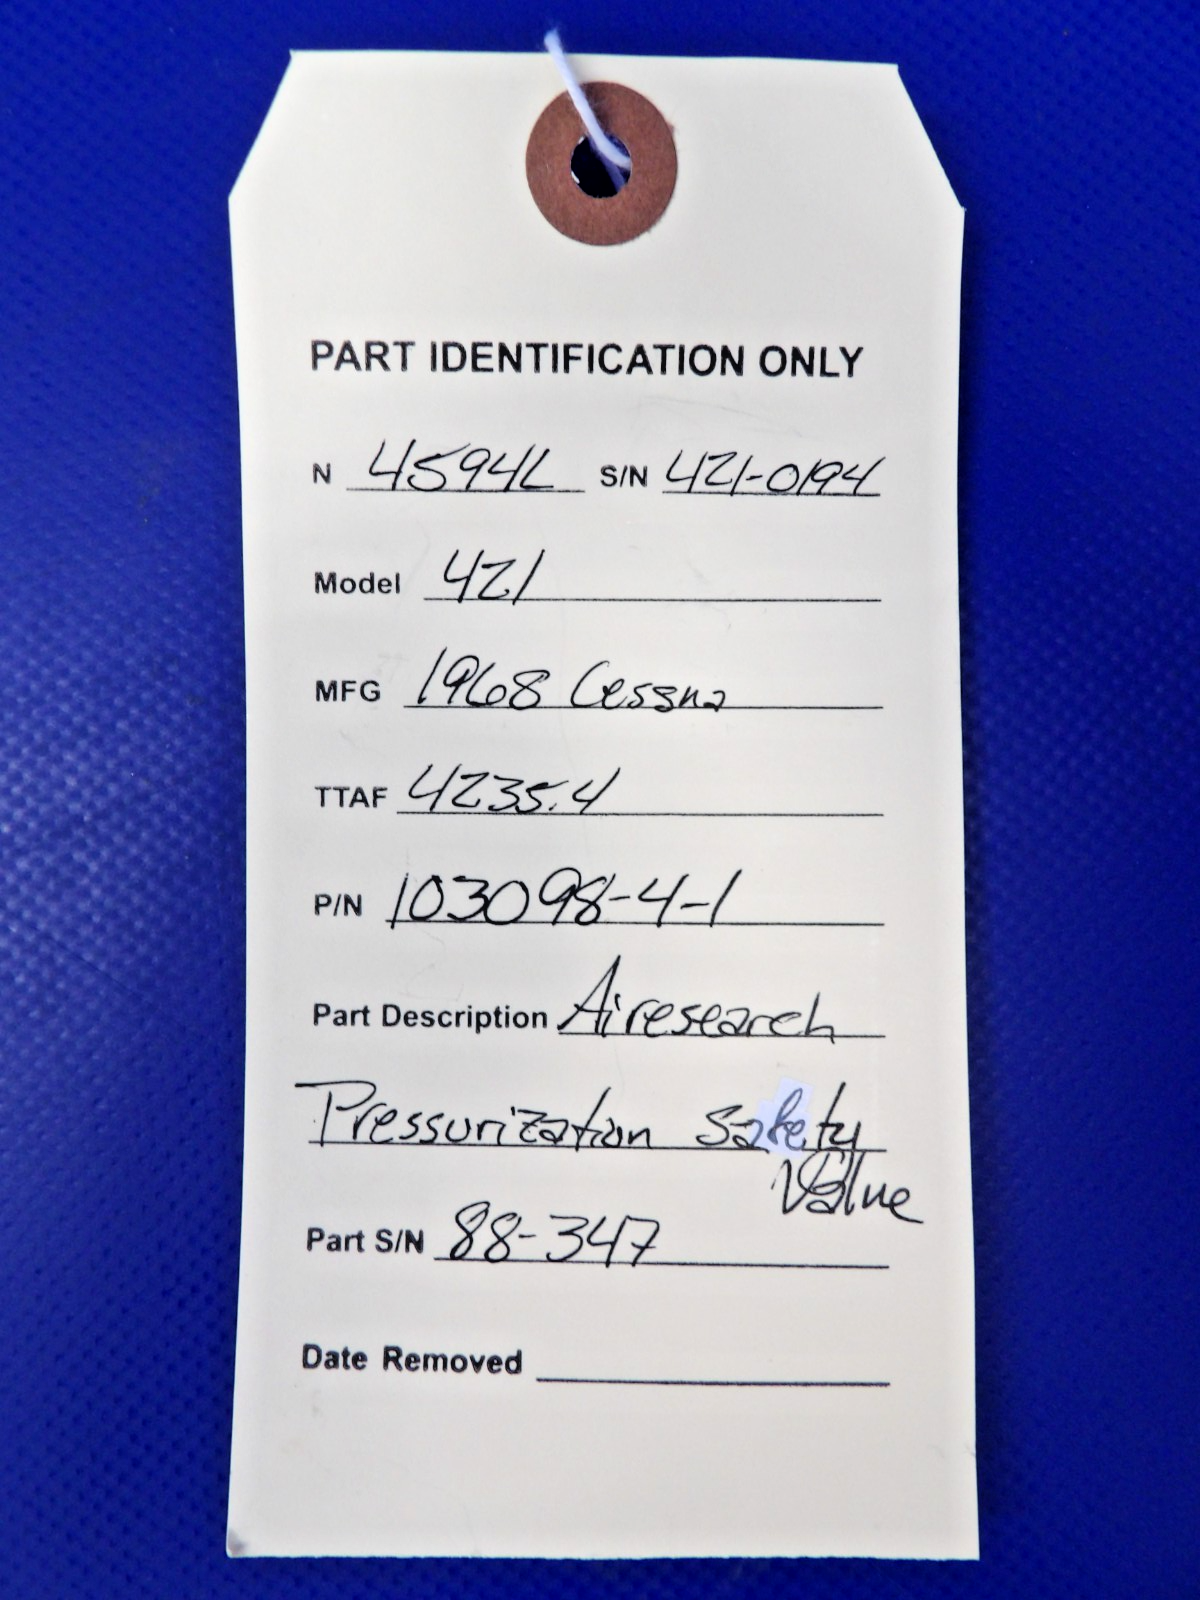 PART IDENTIFICATION ONLY
N 4594L S/N 421-0194
Model 421
MFG 1968 Cessna
TTAF 4235.4
P/N 103098-4-1
Part Description Airesearch
Pressurization Safety
Valve
Part S/N 88-347
Date Removed